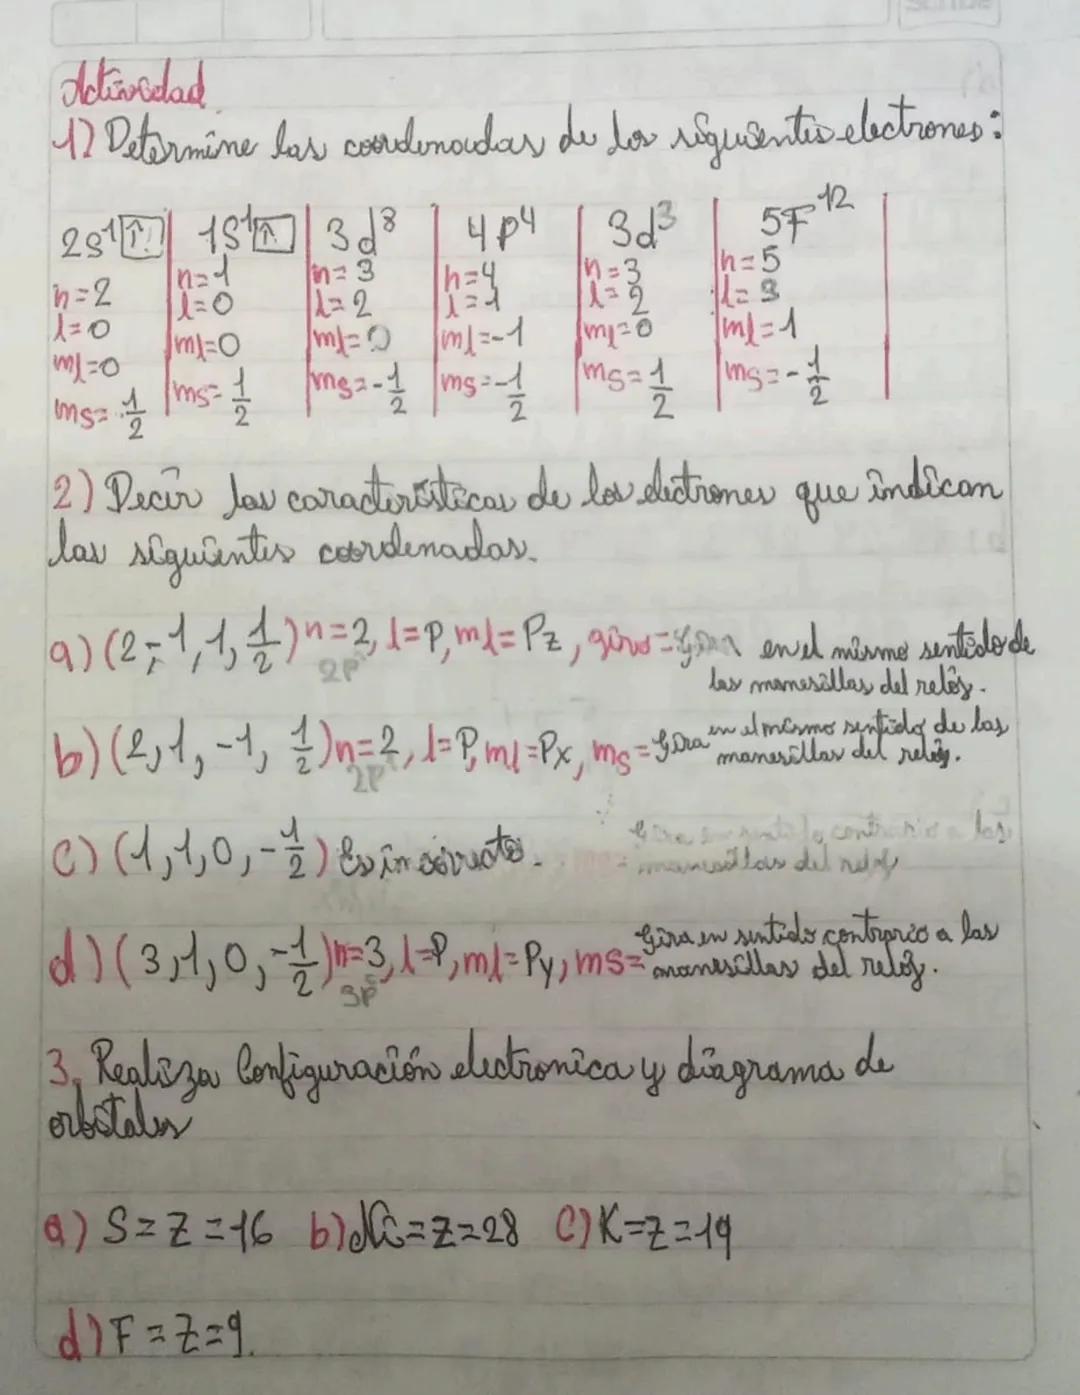 Actividad.
1) Determine las coordenadas de los siguientes electrones:
2s¹ ↑ 1s¹ ↑ 3d⁸ 4p⁴ 3d³ 5F¹²
n=2 n=1 n=3 n=4 n=3 n=5
l=0 l=0 l=2 l=1 l=2 l=3
ml=0 ml=0 ml=0 ml=-1 ml=0 ml=1
ms=1/2 ms=1/2 ms=-1/2 ms=-1/2 ms=1/2 ms=-1/2
2) Decir las características de los electrones que indican
las siguientes coordenadas.
a) (2,-1,1,1/2) n=2, l=P, ml=Pz, giro=Gira en el mismo sentido de
2p
las manesillas del reloj.
b) (2,1,-1,1/2) n=2, l=P, ml=Px, ms=Gira en el mismo sentido de las
2p manesillas del reloj.
c) (1,1,0,-1/2) Es incorrecto. Gira en sentido contrario a las
manesillas del reloj
d) (3,1,0,-1/2) n=3, l=P, ml=Py, ms=Gira en sentido contrario a las
3p manesillas del reloj.
3. Realiza Configuración electronica y diagrama de
orbitales
a) S=Z=16 b) Ni=Z=28 C) K=Z=19
d) F=Z=9.